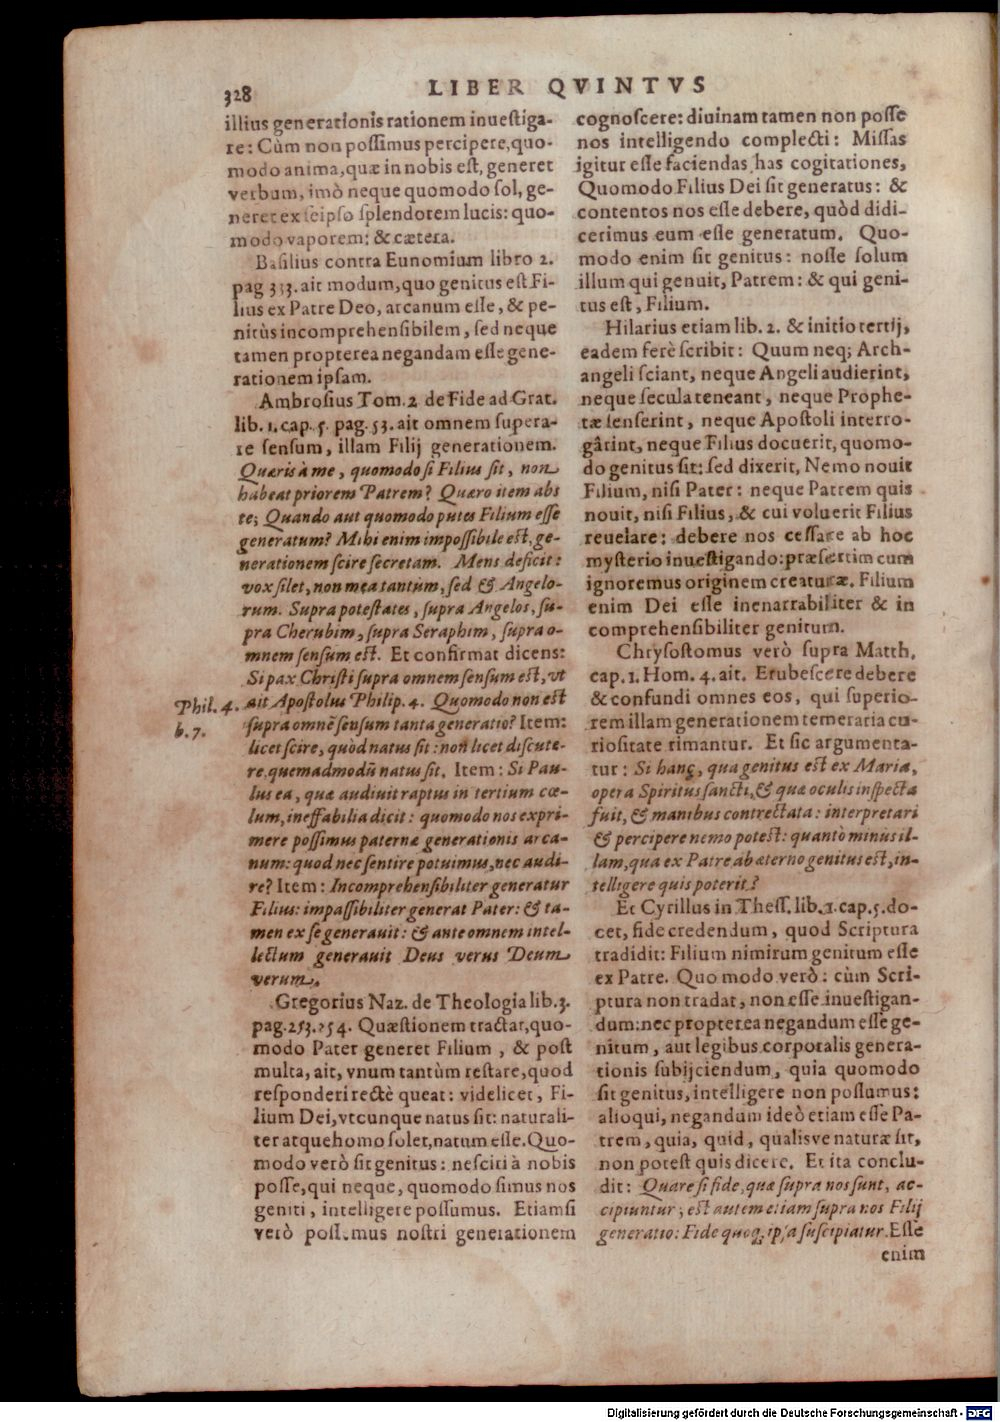 328
LIBER QVINTVS
illius generationis rationem inuestiga-
re: Cùm non possimus percipere, quo-
modo anima, quæ in nobis est, generet
verbum, imò neque quomodo sol, ge-
neret ex seipso splendorem lucis: quo-
modo vaporem: & cætera.
Basilius contra Eunomium libro 2.
pag 333. ait modum, quo genitus est Fi-
lius ex Patre Deo, arcanum esse, & pe-
nitùs incomprehensibilem, sed neque
tamen propterea negandam esse gene-
rationem ipsam.
Ambrosius Tom. 2 de Fide ad Grat.
lib. 1. cap. 5. pag. 53. ait omnem supera-
re sensum, illam Filij generationem.
Quæris à me, quomodo si Filius sit, non
habeat priorem Patrem? Quæro item abs
te; Quando aut quomodo putes Filium esse
generatum? Mihi enim impossibile est, ge-
nerationem scire secretam. Mens deficit:
vox silet, non mea tantum, sed & Angelo-
rum. Supra potestates, supra Angelos, su-
pra Cherubim, supra Seraphim, supra o-
mnem sensum est. Et confirmat dicens:
Si pax Christi supra omnem sensum est, vt
ait Apostolus Philip. 4. Quomodo non est
supra omnē sensum tanta generatio? Item:
licet scire, quòd natus sit: non licet discute-
re, quemadmodū natus sit. Item: Si Pau-
lus ea, quæ audiuit raptus in tertium cœ-
lum, ineffabilia dicit: quomodo nos expri-
mere possimus paternæ generationis arca-
num: quod nec sentire potuimus, nec audi-
re? Item: Incomprehensibiliter generatur
Filius: impassibiliter generat Pater: & ta-
men ex se generauit: & ante omnem intel-
lectum generauit Deus verus Deum
verum.
Gregorius Naz. de Theologia lib. 3.
pag. 253. 254. Quæstionem tractat, quo-
modo Pater generet Filium, & post
multa, ait, vnum tantùm restare, quod
responderi rectè queat: videlicet, Fi-
lium Dei, vtcunque natus sit: naturali-
ter atque homo solet, natum esse. Quo-
modo verò sit genitus: nesciri à nobis
posse, qui neque, quomodo simus nos
geniti, intelligere possumus. Etiamsi
verò possimus nostri generationem
Phil. 4.
b. 7.
cognoscere: diuinam tamen non posse
nos intelligendo complecti: Missas
igitur esse faciendas has cogitationes,
Quomodo Filius Dei sit generatus: &
contentos nos esse debere, quòd didi-
cerimus eum esse generatum. Quo-
modo enim sit genitus: nosse solum
illum qui genuit, Patrem: & qui geni-
tus est, Filium.
Hilarius etiam lib. 2. & initio tertij,
eadem ferè scribit: Quum neq; Arch-
angeli sciant, neque Angeli audierint,
neque secula teneant, neque Prophe-
tæ senserint, neque Apostoli interro-
gârint, neque Filius docuerit, quomo-
do genitus sit: sed dixerit, Nemo nouit
Filium, nisi Pater: neque Patrem quis
nouit, nisi Filius, & cui voluerit Filius
reuelare: debere nos cessare ab hoc
mysterio inuestigando: præsertim cum
ignoremus originem creaturæ. Filium
enim Dei esse inenarrabiliter & in
comprehensibiliter genitum.
Chrysostomus verò supra Matth.
cap. 1. Hom. 4. ait. Erubescere debere
& confundi omnes eos, qui superio-
rem illam generationem temeraria cu-
riositate rimantur. Et sic argumenta-
tur: Si hanc, qua genitus est ex Maria,
opera Spiritus sancti, & quæ oculis inspecta
fuit, & manibus contrectata: interpretari
& percipere nemo potest: quantò minus il-
lam, qua ex Patre ab æterno genitus est, in-
telligere quis poterit?
Et Cyrillus in Thess. lib. 1. cap. 5. do-
cet, fide credendum, quod Scriptura
tradidit: Filium nimirum genitum esse
ex Patre. Quo modo verò: cùm Scri-
ptura non tradat, non esse inuestigan-
dum: nec propterea negandum esse ge-
nitum, aut legibus corporalis genera-
tionis subijciendum, quia quomodo
sit genitus, intelligere non possumus:
alioqui, negandum ideò etiam esse Pa-
trem, quia, quid, qualisve naturæ sit,
non potest quis dicere. Et ita conclu-
dit: Quare si fide, quæ supra nos sunt, ac-
cipiuntur; est autem etiam supra nos Filij
generatio: Fide quoq; ipsa suscipiatur. Esse
enim
Digitalisierung gefördert durch die Deutsche Forschungsgemeinschaft - DFG